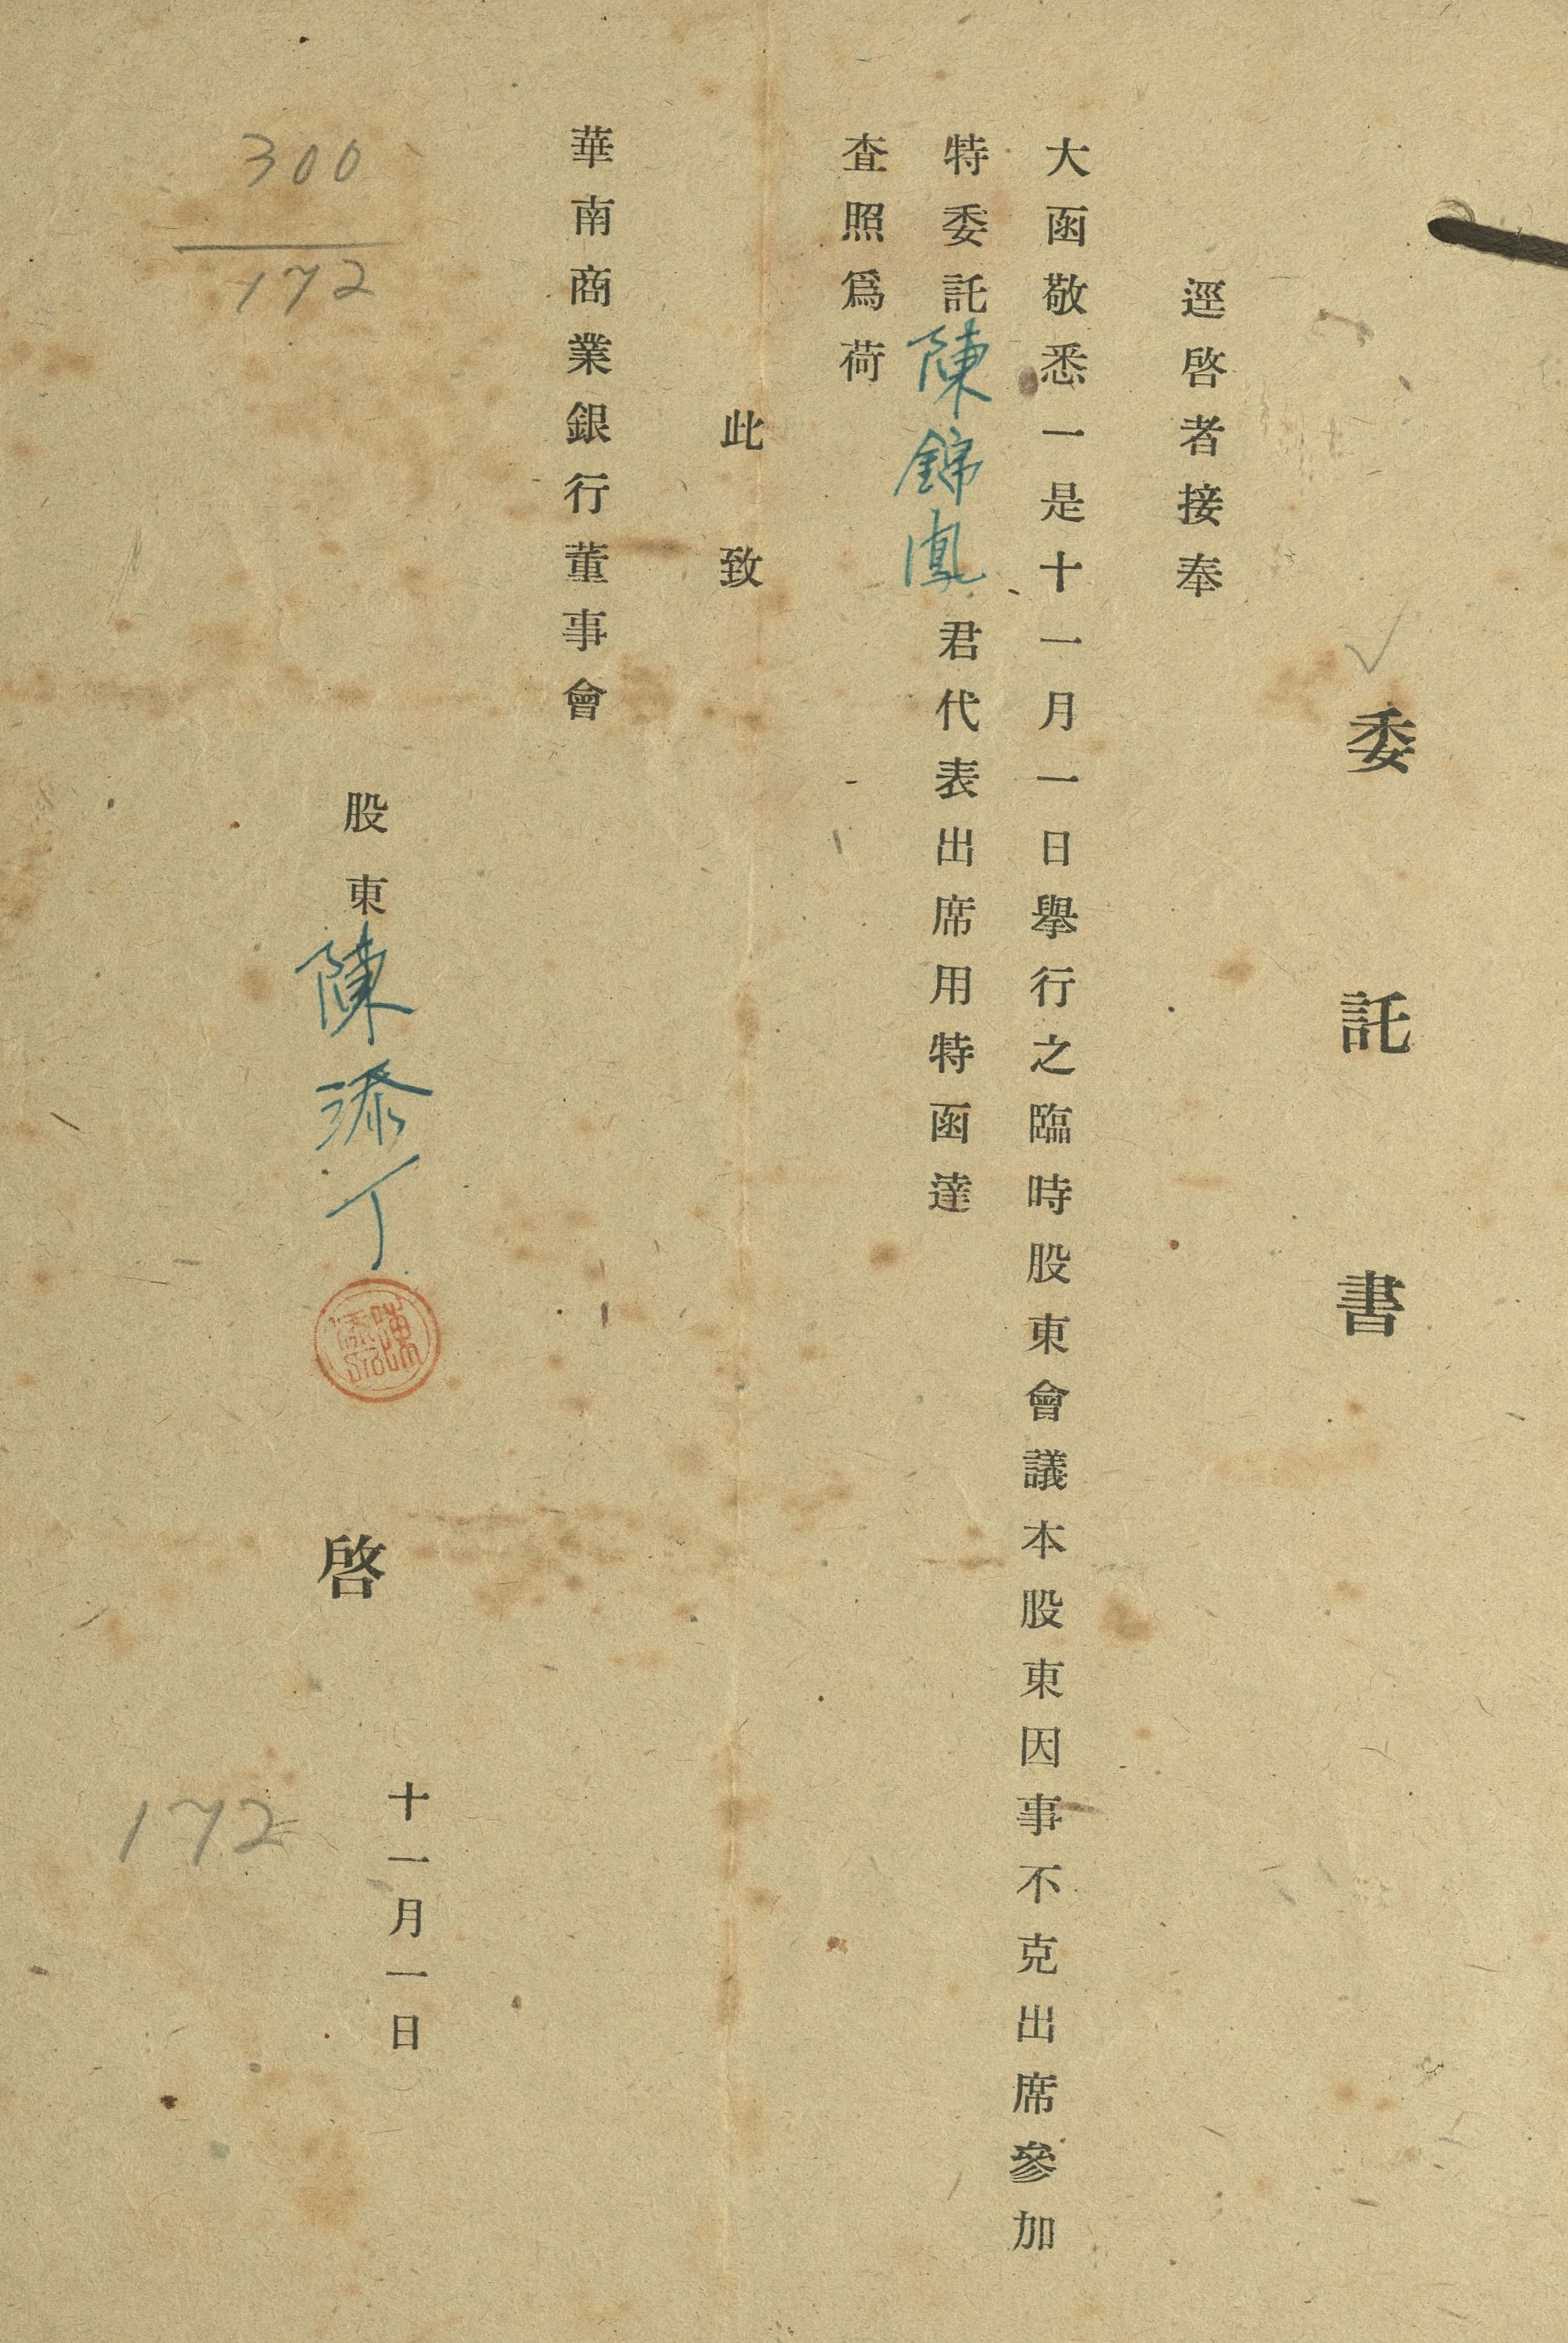 委託書
逕啓者接奉
大函敬悉一是十一月一日舉行之臨時股東會議本股東因事不克出席參加
特委託陳錦鳳君代表出席用特函達
查照爲荷
此致
華南商業銀行董事會
股東陳添丁啓
十一月一日
300
172
172